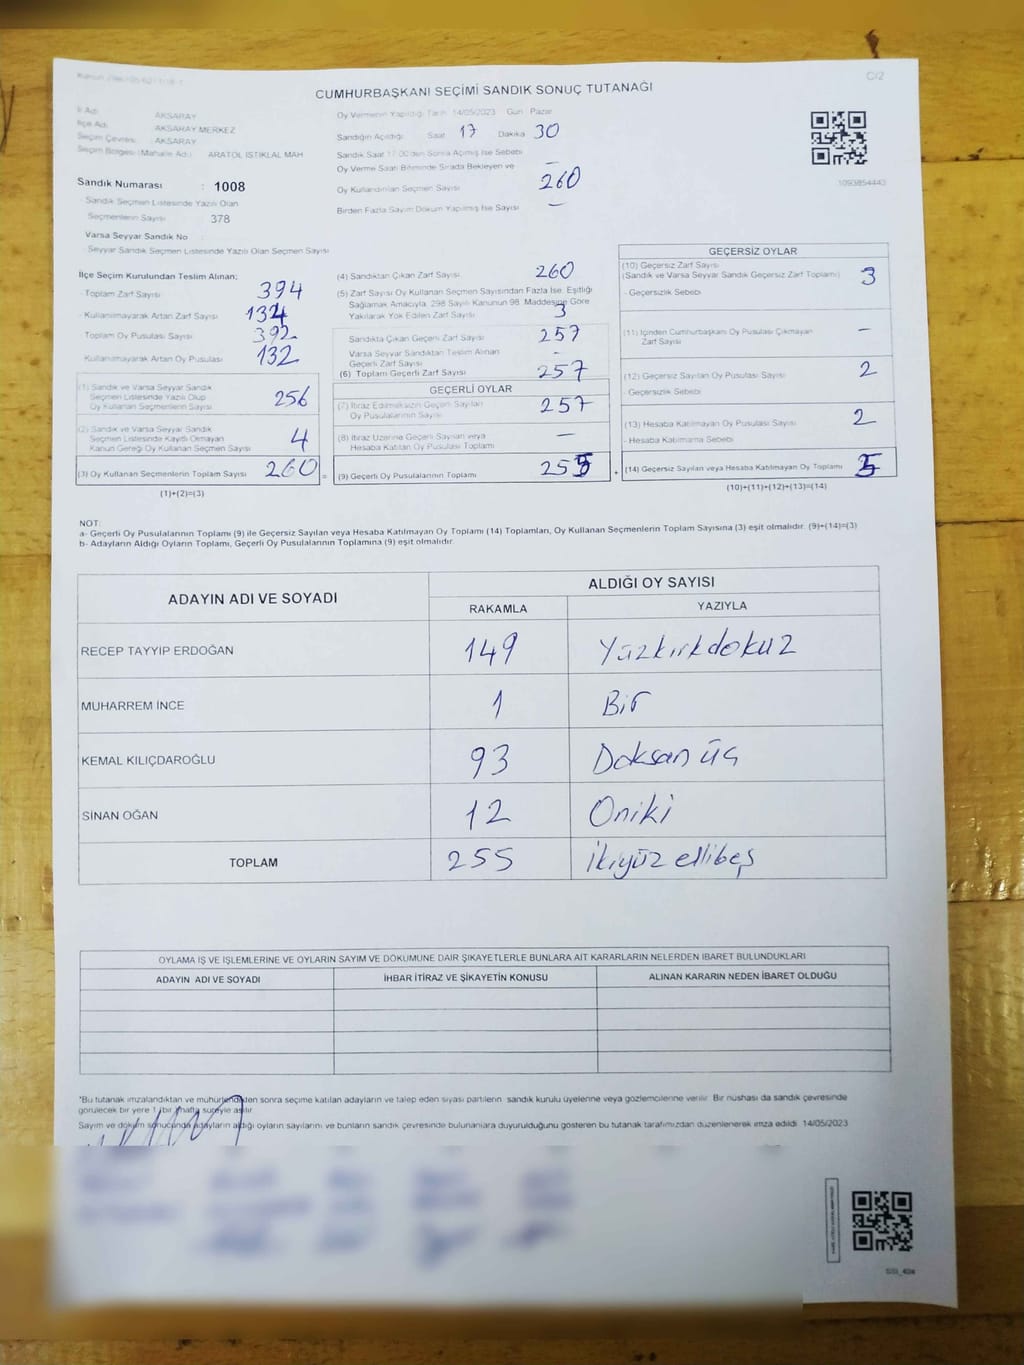 C/2
CUMHURBAŞKANI SEÇİMİ SANDIK SONUÇ TUTANAĞI
İl Adı : AKSARAY
İlçe Adı : AKSARAY MERKEZ
Seçim Çevresi : AKSARAY
Seçim Bölgesi (Mahalle Adı) : ARATOL İSTİKLAL MAH
Sandık Numarası : 1008
Sandık Seçmen Listesinde Yazılı Olan
Seçmenlerin Sayısı : 378
Varsa Seyyar Sandık No :
Seyyar Sandık Seçmen Listesinde Yazılı Olan Seçmen Sayısı
Oy Vermenin Yapıldığı Tarih 14/05/2023 Gün Pazar
Sandığın Açıldığı Saat 17 Dakika 30
Sandık Saat 17.00'den Sonra Açılmış İse Sebebi
Oy Verme Saati Bitiminde Sırada Bekleyen ve –
Oy Kullandırılan Seçmen Sayısı 260
Birden Fazla Sayım Döküm Yapılmış İse Sayısı –
1093854443
İlçe Seçim Kurulundan Teslim Alınan;
- Toplam Zarf Sayısı 394
- Kullanılmayarak Artan Zarf Sayısı 134
Toplam Oy Pusulası Sayısı 392
Kullanılmayarak Artan Oy Pusulası 132
(1) Sandık ve Varsa Seyyar Sandık
Seçmen Listesinde Yazılı Olup
Oy Kullanan Seçmenlerin Sayısı 256
(2) Sandık ve Varsa Seyyar Sandık
Seçmen Listesinde Kayıtlı Olmayan
Kanun Gereği Oy Kullanan Seçmen Sayısı 4
(3) Oy Kullanan Seçmenlerin Toplam Sayısı 260 =
(1)+(2)=(3)
(4) Sandıktan Çıkan Zarf Sayısı 260
(5) Zarf Sayısı Oy Kullanan Seçmen Sayısından Fazla İse, Eşitliği
Sağlamak Amacıyla, 298 Sayılı Kanunun 98. Maddesine Göre
Yakılarak Yok Edilen Zarf Sayısı 3
Sandıkta Çıkan Geçerli Zarf Sayısı 257
Varsa Seyyar Sandıktan Teslim Alınan
Geçerli Zarf Sayısı –
(6) Toplam Geçerli Zarf Sayısı 257
GEÇERLİ OYLAR
(7) İtiraz Edilmeksizin Geçerli Sayılan
Oy Pusulalarının Sayısı 257
(8) İtiraz Üzerine Geçerli Sayılan veya
Hesaba Katılan Oy Pusulası Toplamı –
(9) Geçerli Oy Pusulalarının Toplamı 255 +
GEÇERSİZ OYLAR
(10) Geçersiz Zarf Sayısı
(Sandık ve Varsa Seyyar Sandık Geçersiz Zarf Toplamı) 3
- Geçersizlik Sebebi
(11) İçinden Cumhurbaşkanı Oy Pusulası Çıkmayan
Zarf Sayısı –
(12) Geçersiz Sayılan Oy Pusulası Sayısı 2
- Geçersizlik Sebebi
(13) Hesaba Katılmayan Oy Pusulası Sayısı 2
- Hesaba Katılmama Sebebi
(14) Geçersiz Sayılan veya Hesaba Katılmayan Oy Toplamı 5
(10)+(11)+(12)+(13)=(14)
NOT:
a- Geçerli Oy Pusulalarının Toplamı (9) ile Geçersiz Sayılan veya Hesaba Katılmayan Oy Toplamı (14) Toplamları, Oy Kullanan Seçmenlerin Toplam Sayısına (3) eşit olmalıdır. (9)+(14)=(3)
b- Adayların Aldığı Oyların Toplamı, Geçerli Oy Pusulalarının Toplamına (9) eşit olmalıdır.
ADAYIN ADI VE SOYADI ALDIĞI OY SAYISI
RAKAMLA YAZIYLA
RECEP TAYYİP ERDOĞAN 149 Yüzkırkdokuz
MUHARREM İNCE 1 Bir
KEMAL KILIÇDAROĞLU 93 Doksan üç
SİNAN OĞAN 12 Oniki
TOPLAM 255 İkiyüz ellibeş
OYLAMA İŞ VE İŞLEMLERİNE VE OYLARIN SAYIM VE DÖKÜMÜNE DAİR ŞİKAYETLERLE BUNLARA AİT KARARLARIN NELERDEN İBARET BULUNDUKLARI
ADAYIN ADI VE SOYADI İHBAR İTİRAZ VE ŞİKAYETİN KONUSU ALINAN KARARIN NEDEN İBARET OLDUĞU
*Bu tutanak imzalandıktan ve mühürlendikten sonra seçime katılan adayların ve talep eden siyasi partilerin sandık kurulu üyelerine veya gözlemcilerine verilir. Bir nüshası da sandık çevresinde
görülecek bir yere 1 (bir) hafta süreyle asılır.
Sayım ve döküm sonucunda adayların aldığı oyların sayılarını ve bunların sandık çevresinde bulunanlara duyurulduğunu gösteren bu tutanak tarafımızdan düzenlenerek imza edildi. 14/05/2023